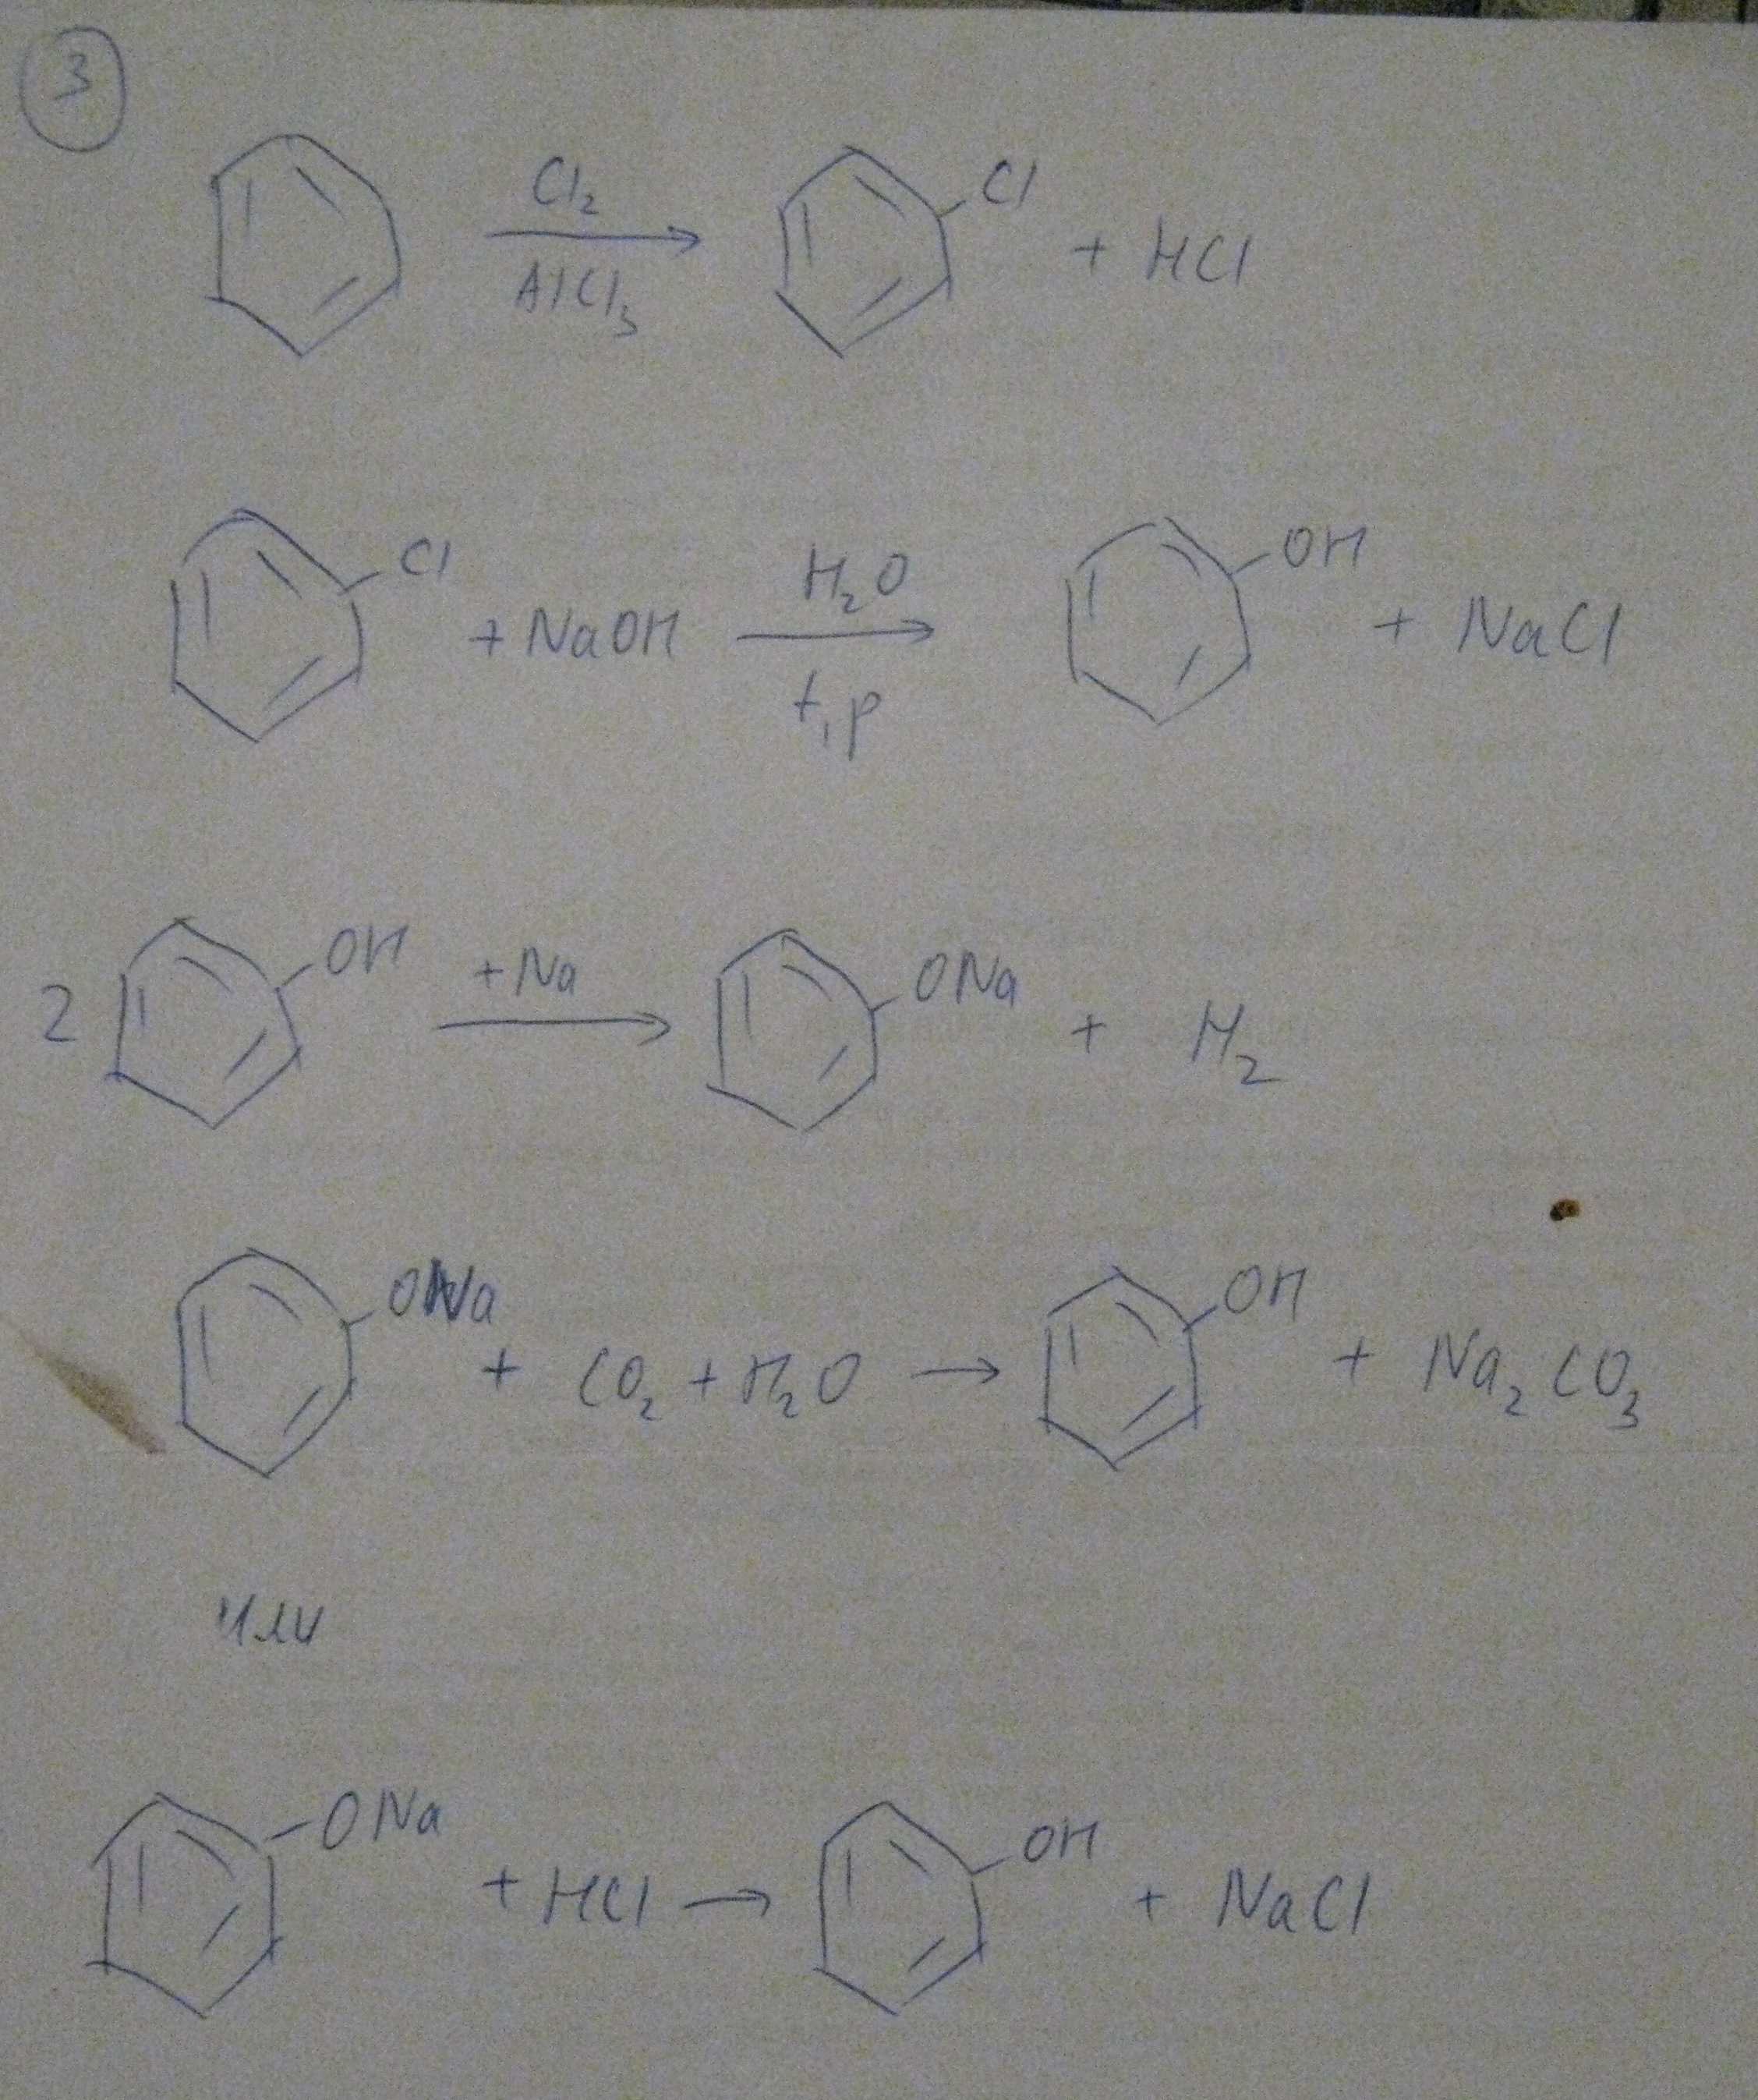 3
Cl₂
AlCl₃
Cl
+ HCl
Cl
+ NaOH
H₂O
t, p
OH
+ NaCl
2
OH
+ Na
ONa
+ H₂
ONa
+ CO₂ + H₂O →
OH
+ Na₂CO₃
или
ONa
+ HCl →
OH
+ NaCl